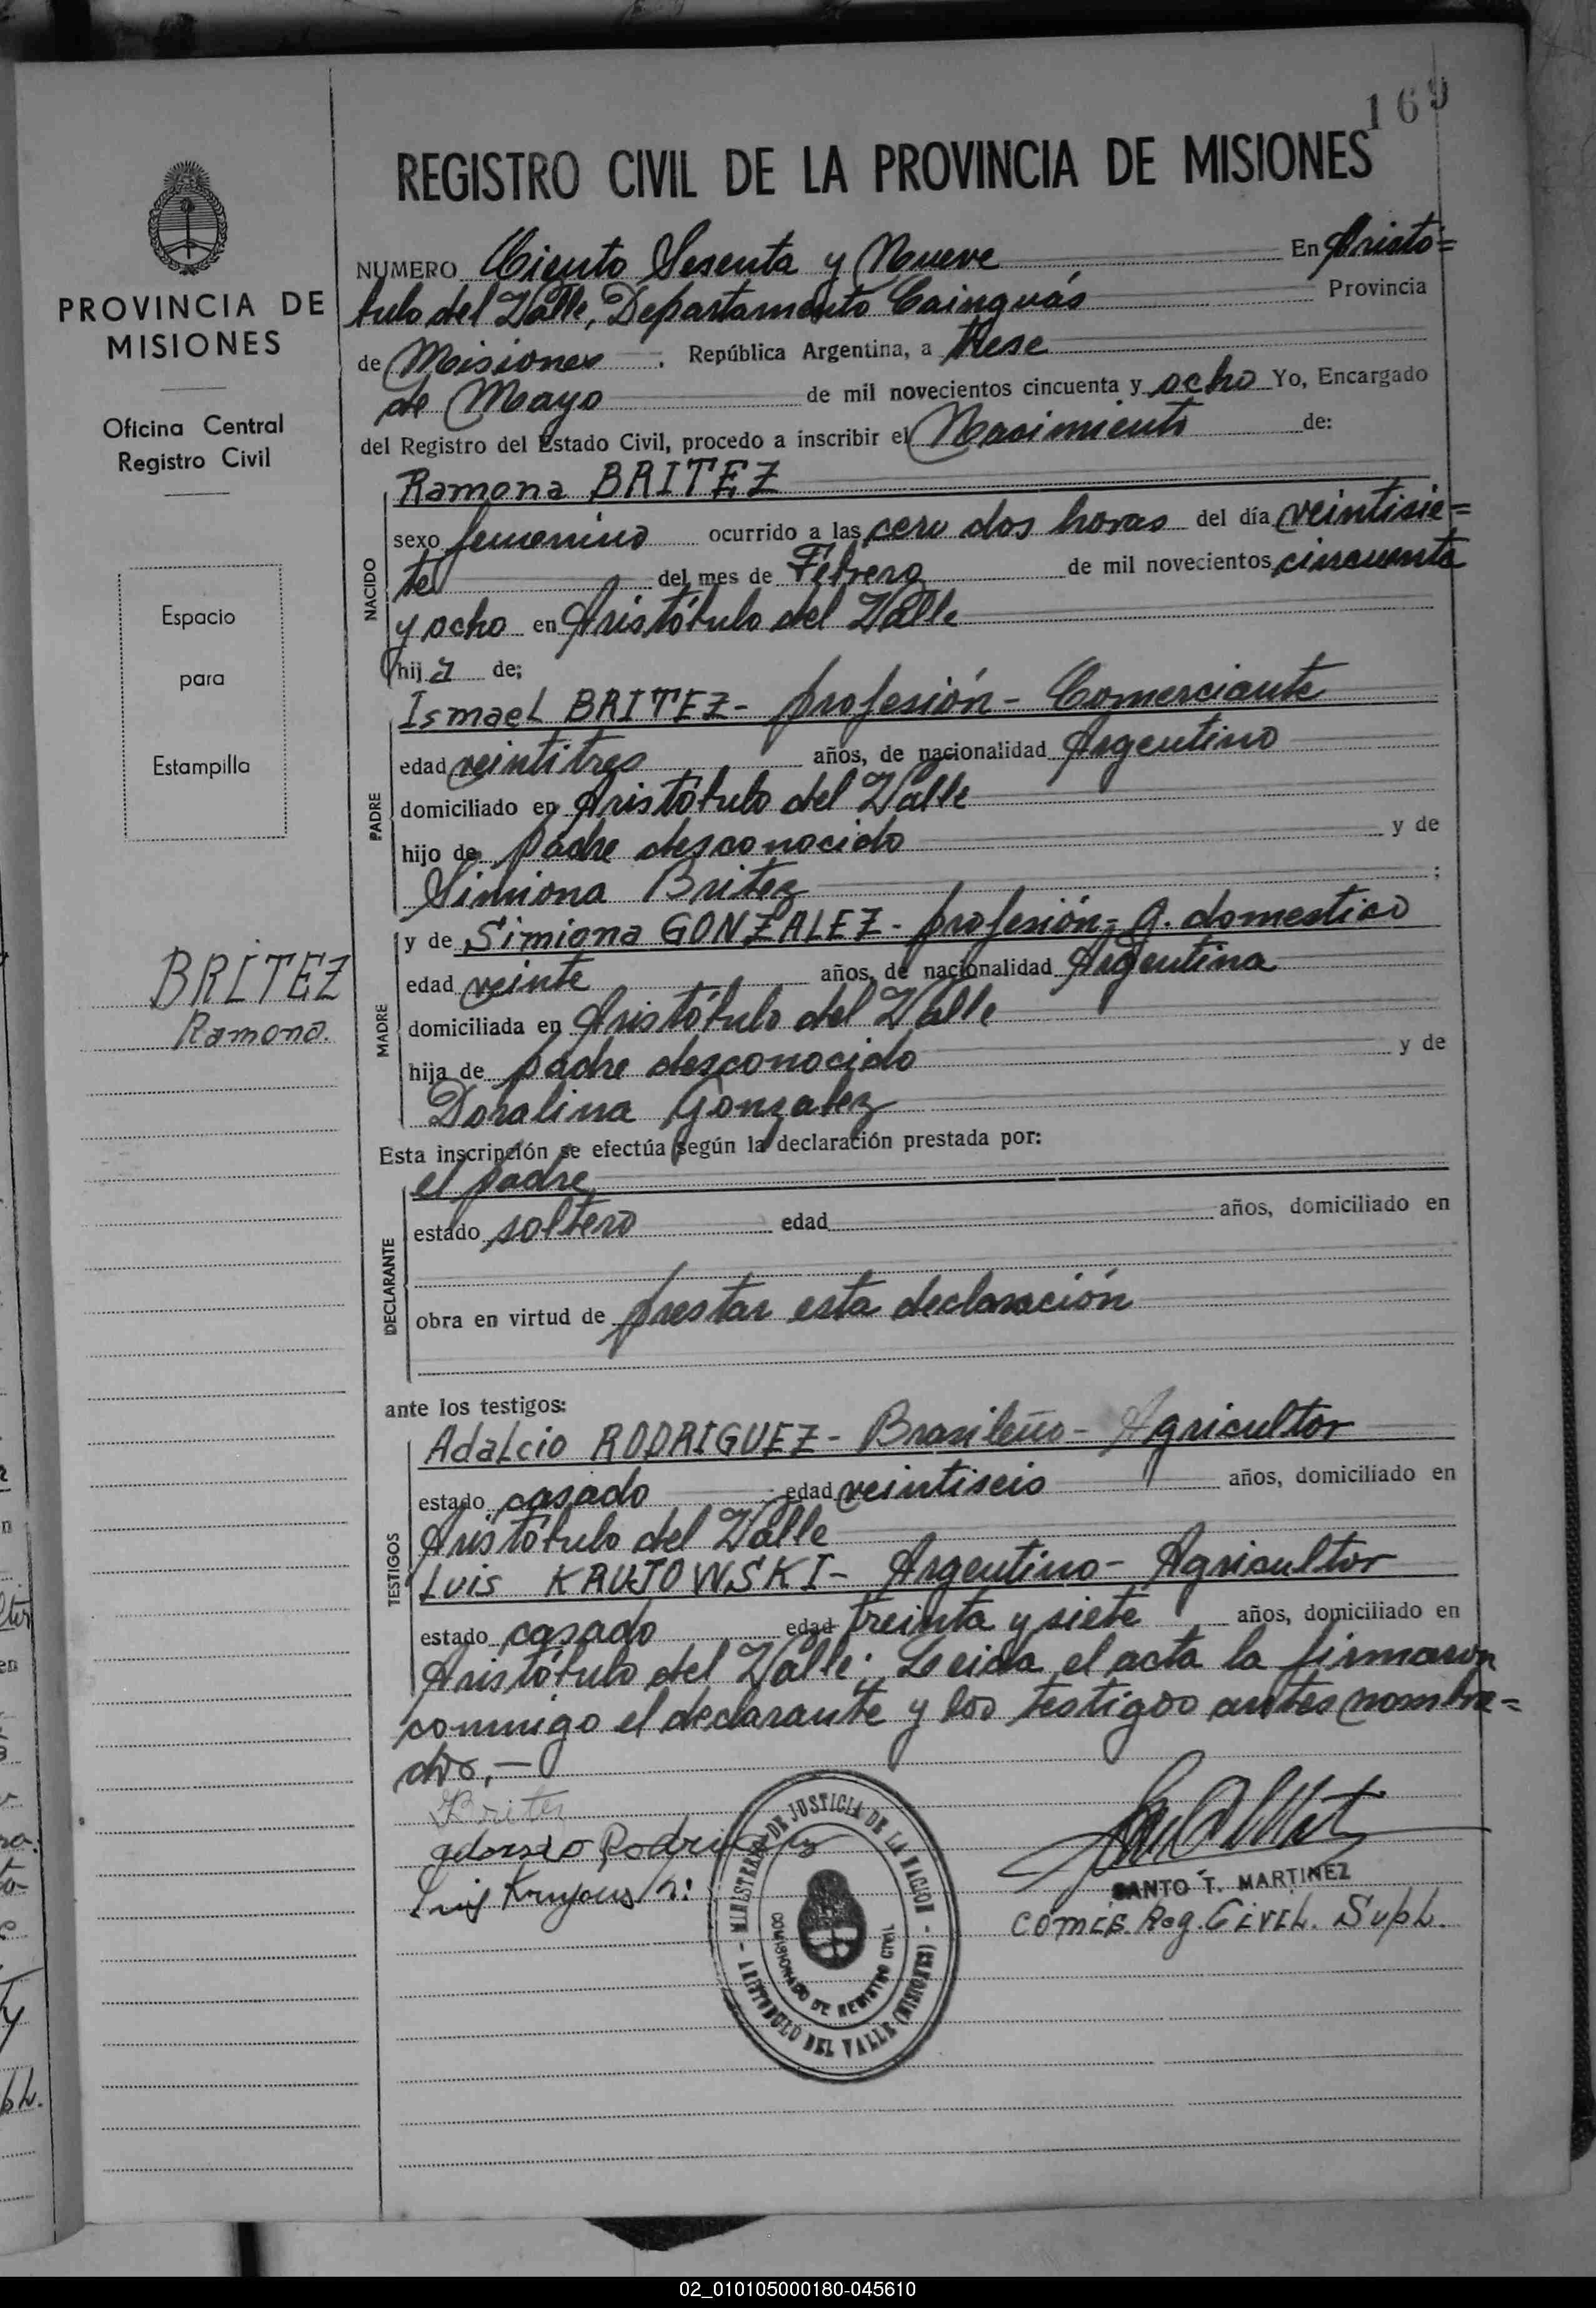 169
REGISTRO CIVIL DE LA PROVINCIA DE MISIONES
NUMERO Ciento Sesenta y Nueve En Aristó=
bulo del Valle, Departamento Cainguás Provincia
de Misiones . República Argentina, a trese
de Mayo de mil novecientos cincuenta y ocho Yo, Encargado
del Registro del Estado Civil, procedo a inscribir el Nacimiento de:
NACIDO
Ramona BRITEZ
sexo femenino ocurrido a las cero dos horas del día veintisie=
te del mes de Febrero de mil novecientos cincuenta
y ocho en Aristóbulo del Valle
hija de;
PADRE
Ismael BRITEZ- profesión- Comerciante
edad veintitres años, de nacionalidad Argentino
domiciliado en Aristóbulo del Valle
hijo de padre desconocido y de
Simiona Britez ;
MADRE
y de Simiona GONZALEZ- profesión- q. domestico
edad veinte años, de nacionalidad Argentina
domiciliada en Aristóbulo del Valle
hija de padre desconocido y de
Doralina Gonzalez
Esta inscripción se efectúa según la declaración prestada por:
DECLARANTE
el padre
estado soltero edad años, domiciliado en
obra en virtud de prestar esta declaración
ante los testigos:
TESTIGOS
Adalcio RODRIGUEZ- Brasileño- Agricultor
estado casado edad veintiseis años, domiciliado en
Aristóbulo del Valle
Luis KRUJOWSKI- Argentino- Agricultor
estado casado edad treinta y siete años, domiciliado en
Aristóbulo del Valle; Leida el acta la firmaron
conmigo el declarante y los testigos antes nombra=
dos.-
Britez
SANTO T. MARTINEZ
Comis. Reg. Civil. Supl.
MINISTERIO DE JUSTICIA DE LA NACION
COMISIONADO DE REGISTRO CIVIL
ARISTOBULO DEL VALLE (MISIONES)
PROVINCIA DE
MISIONES
Oficina Central
Registro Civil
Espacio
para
Estampilla
BRITEZ
Ramona.
02_010105000180-045610